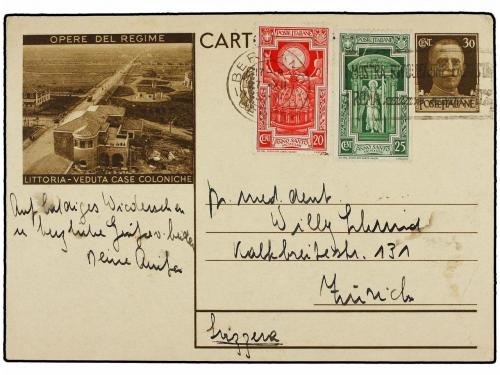 OPERE DEL REGIME
LITTORIA - VEDUTA CASE COLONICHE
CART
POSTE ITALIANE
ANNO SANTO
CENT 20
POSTE ITALIANE
ANNO SANTO
CENT 25
CENT. 30
POSTE ITALIANE
Auf baldiges Wiedersehen
u herzliche
Deine
Dr. med. dent
Willy Schmid
Kalkbreitestr. 131
Zürich
Svizzera